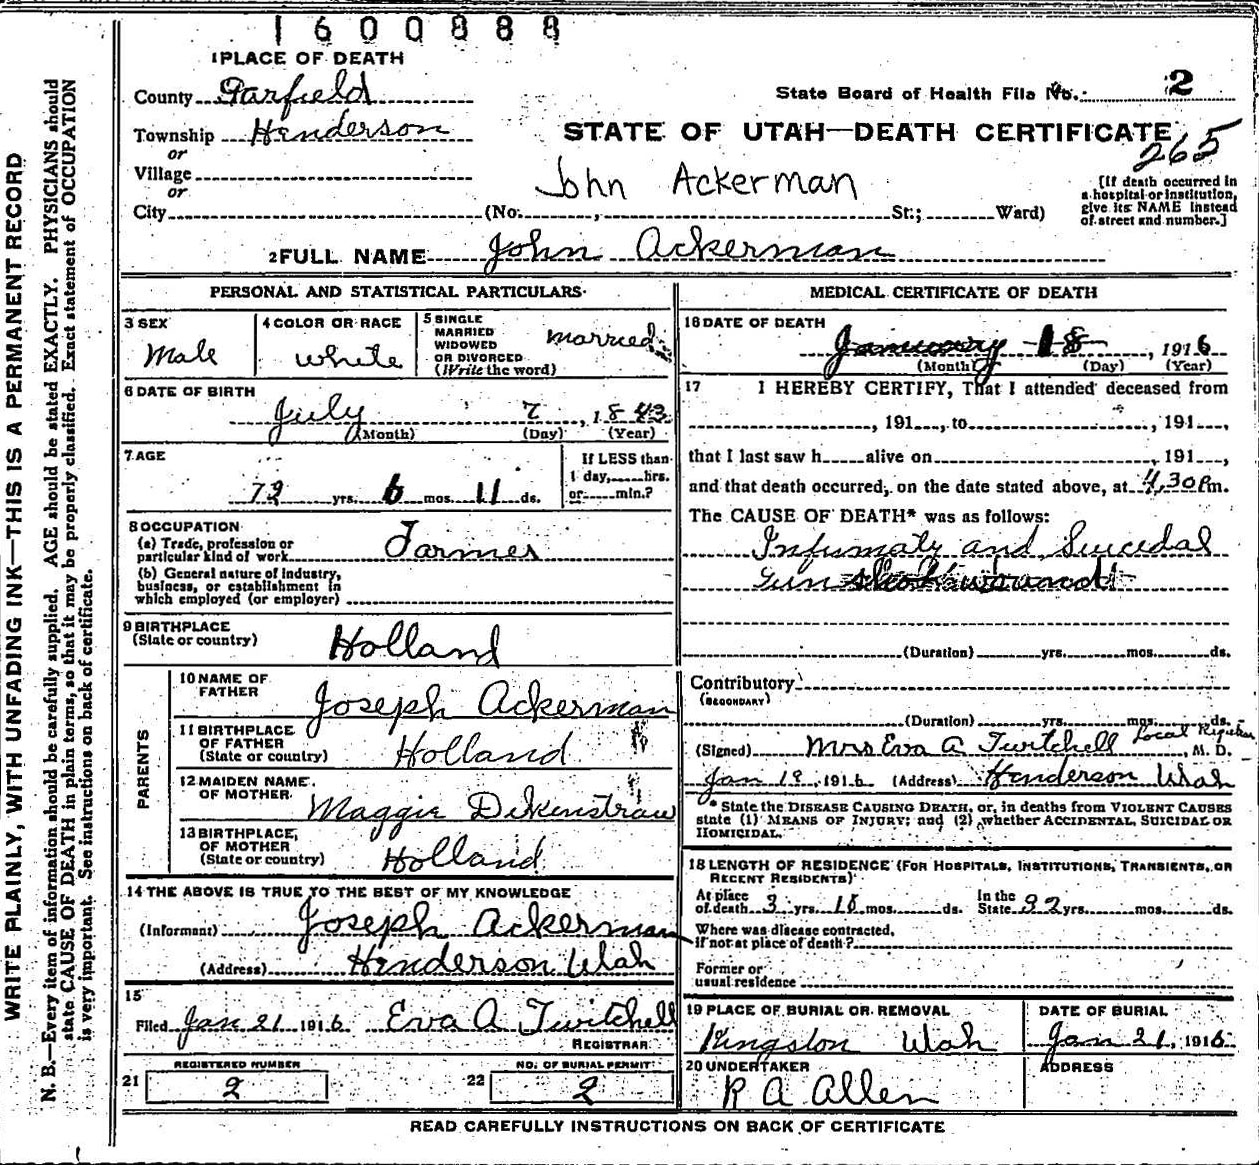 1600888
1 PLACE OF DEATH
County Garfield
State Board of Health File No. 2
Township Henderson
STATE OF UTAH—DEATH CERTIFICATE
265
or
Village
or
John Ackerman
[If death occurred in
a hospital or institution,
give its NAME instead
of street and number.]
City (No. , St.; Ward)
2 FULL NAME John Ackerman
PERSONAL AND STATISTICAL PARTICULARS
3 SEX
Male
4 COLOR OR RACE
White
5 SINGLE
MARRIED
WIDOWED
OR DIVORCED
(Write the word)
married
6 DATE OF BIRTH
July 7, 1843
(Month) (Day) (Year)
7 AGE
72 yrs. 6 mos. 11 ds.
If LESS than
1 day, hrs.
or min.?
8 OCCUPATION
(a) Trade, profession or
particular kind of work Farmer
(b) General nature of industry,
business, or establishment in
which employed (or employer)
9 BIRTHPLACE
(State or country) Holland
PARENTS
10 NAME OF
FATHER Joseph Ackerman
11 BIRTHPLACE
OF FATHER
(State or country) Holland
12 MAIDEN NAME
OF MOTHER Maggie Dikenstraw
13 BIRTHPLACE
OF MOTHER
(State or country) Holland
14 THE ABOVE IS TRUE TO THE BEST OF MY KNOWLEDGE
(Informant) Joseph Ackerman
(Address) Henderson Utah
15
Filed Jan 21 1916 Eva A Twitchell
REGISTRAR
REGISTERED NUMBER
21 2
NO. OF BURIAL PERMIT
22 2
MEDICAL CERTIFICATE OF DEATH
16 DATE OF DEATH
January 18, 1916
(Month) (Day) (Year)
17 I HEREBY CERTIFY, That I attended deceased from
, 191 , to , 191 ,
that I last saw h alive on , 191 ,
and that death occurred, on the date stated above, at 4.30 Pm.
The CAUSE OF DEATH* was as follows:
Infumaty and Suicedal
Gun shot wound
(Duration) yrs. mos. ds.
Contributory
(SECONDARY)
(Duration) yrs. mos. ds.
(Signed) Mrs Eva A Twitchell Local Registrar, M. D.
Jan 19, 1916 (Address) Henderson Utah
* State the DISEASE CAUSING DEATH, or, in deaths from VIOLENT CAUSES
state (1) MEANS OF INJURY; and (2) whether ACCIDENTAL, SUICIDAL OR
HOMICIDAL.
18 LENGTH OF RESIDENCE (FOR HOSPITALS, INSTITUTIONS, TRANSIENTS, OR
RECENT RESIDENTS)
At place
of death 3 yrs. 18 mos. ds.
In the
State 32 yrs. mos. ds.
Where was disease contracted,
if not at place of death?
Former or
usual residence
19 PLACE OF BURIAL OR REMOVAL
Kingston Utah
DATE OF BURIAL
Jan 21, 1916
20 UNDERTAKER
R A Allen
ADDRESS
READ CAREFULLY INSTRUCTIONS ON BACK OF CERTIFICATE
WRITE PLAINLY, WITH UNFADING INK—THIS IS A PERMANENT RECORD
N. B.—Every item of information should be carefully supplied. AGE should be stated EXACTLY. PHYSICIANS should
state CAUSE OF DEATH in plain terms, so that it may be properly classified. Exact statement of OCCUPATION
is very important. See instructions on back of certificate.